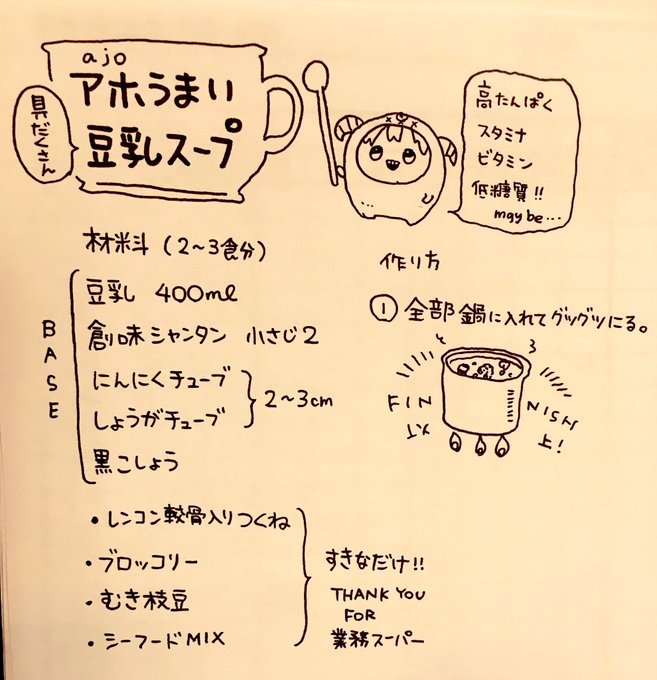 ajo
アホうまい
豆乳スープ
具だくさん
高たんぱく
スタミナ
ビタミン
低糖質!!
maybe...
材料(2〜3食分)
BASE
豆乳 400ml
創味シャンタン 小さじ2
にんにくチューブ
しょうがチューブ
2〜3cm
黒こしょう
・レンコン軟骨入りつくね
・ブロッコリー
・むき枝豆
・シーフードMIX
すきなだけ!!
THANK YOU
FOR
業務スーパー
作り方
① 全部鍋に入れてグツグツにる。
FIN NISH
以上!